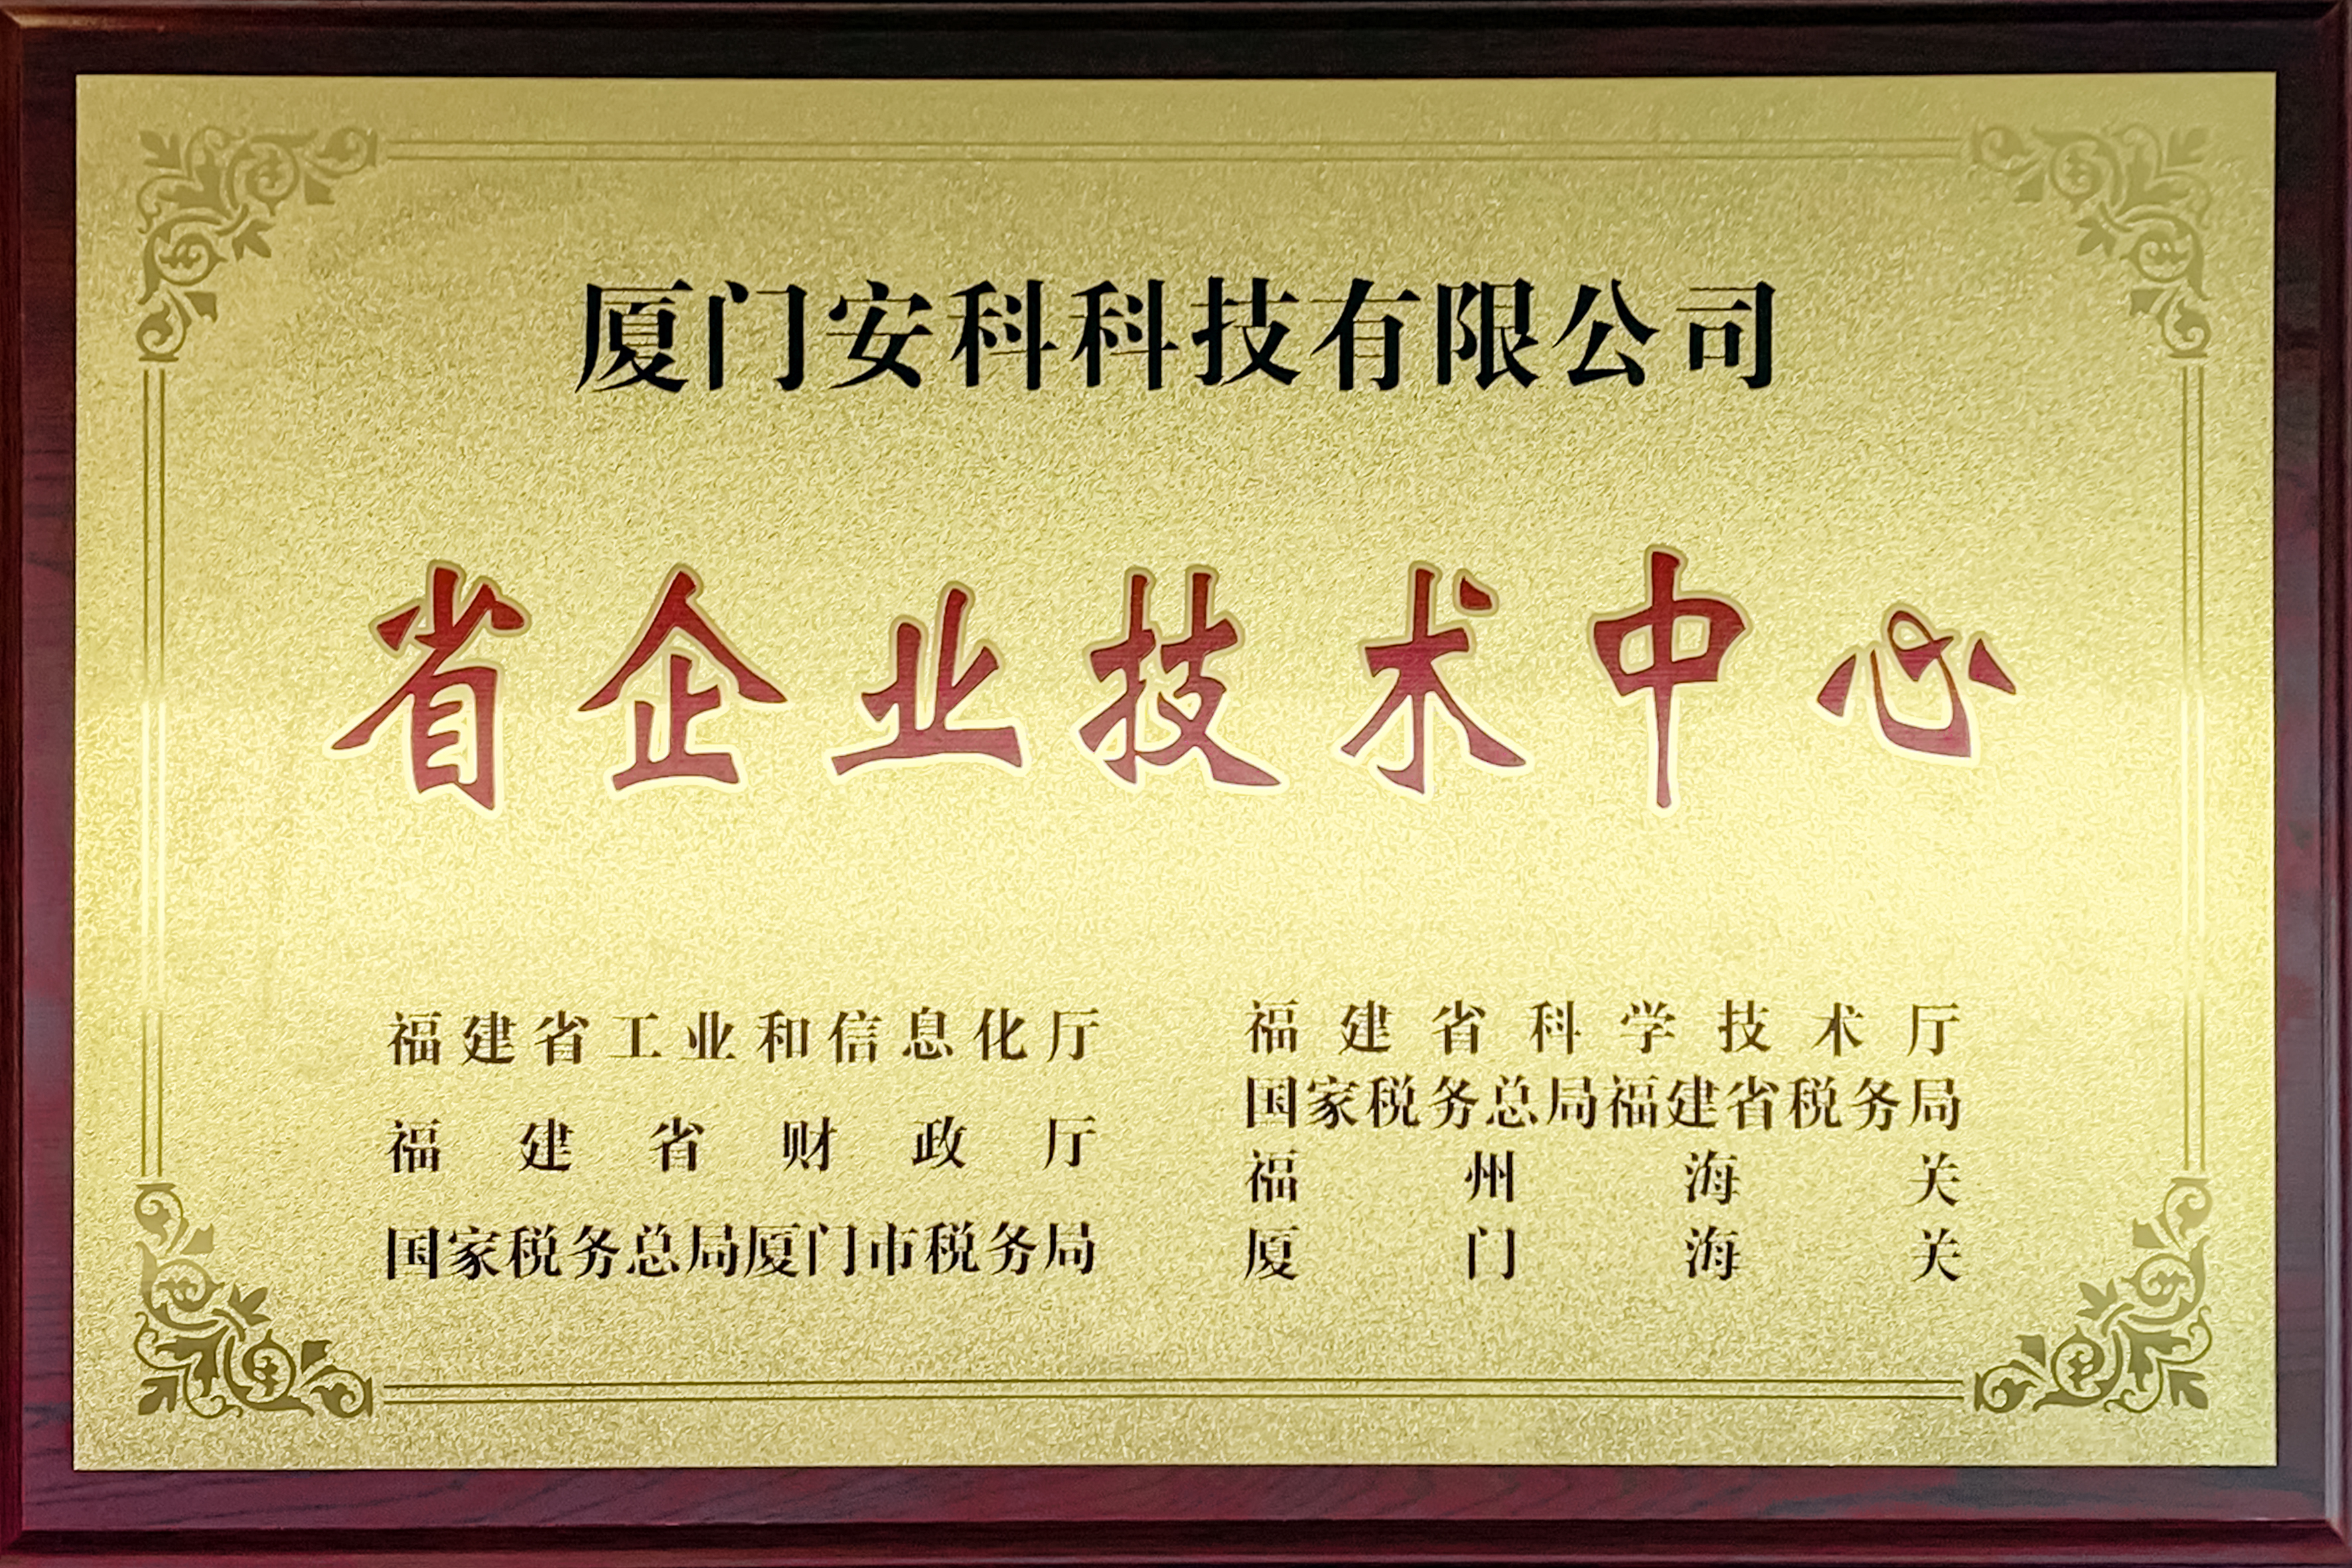 厦门安科科技有限公司
省企业技术中心
福建省工业和信息化厅
福建省财政厅
国家税务总局厦门市税务局
福建省科学技术厅
国家税务总局福建省税务局
福州海关
厦门海关